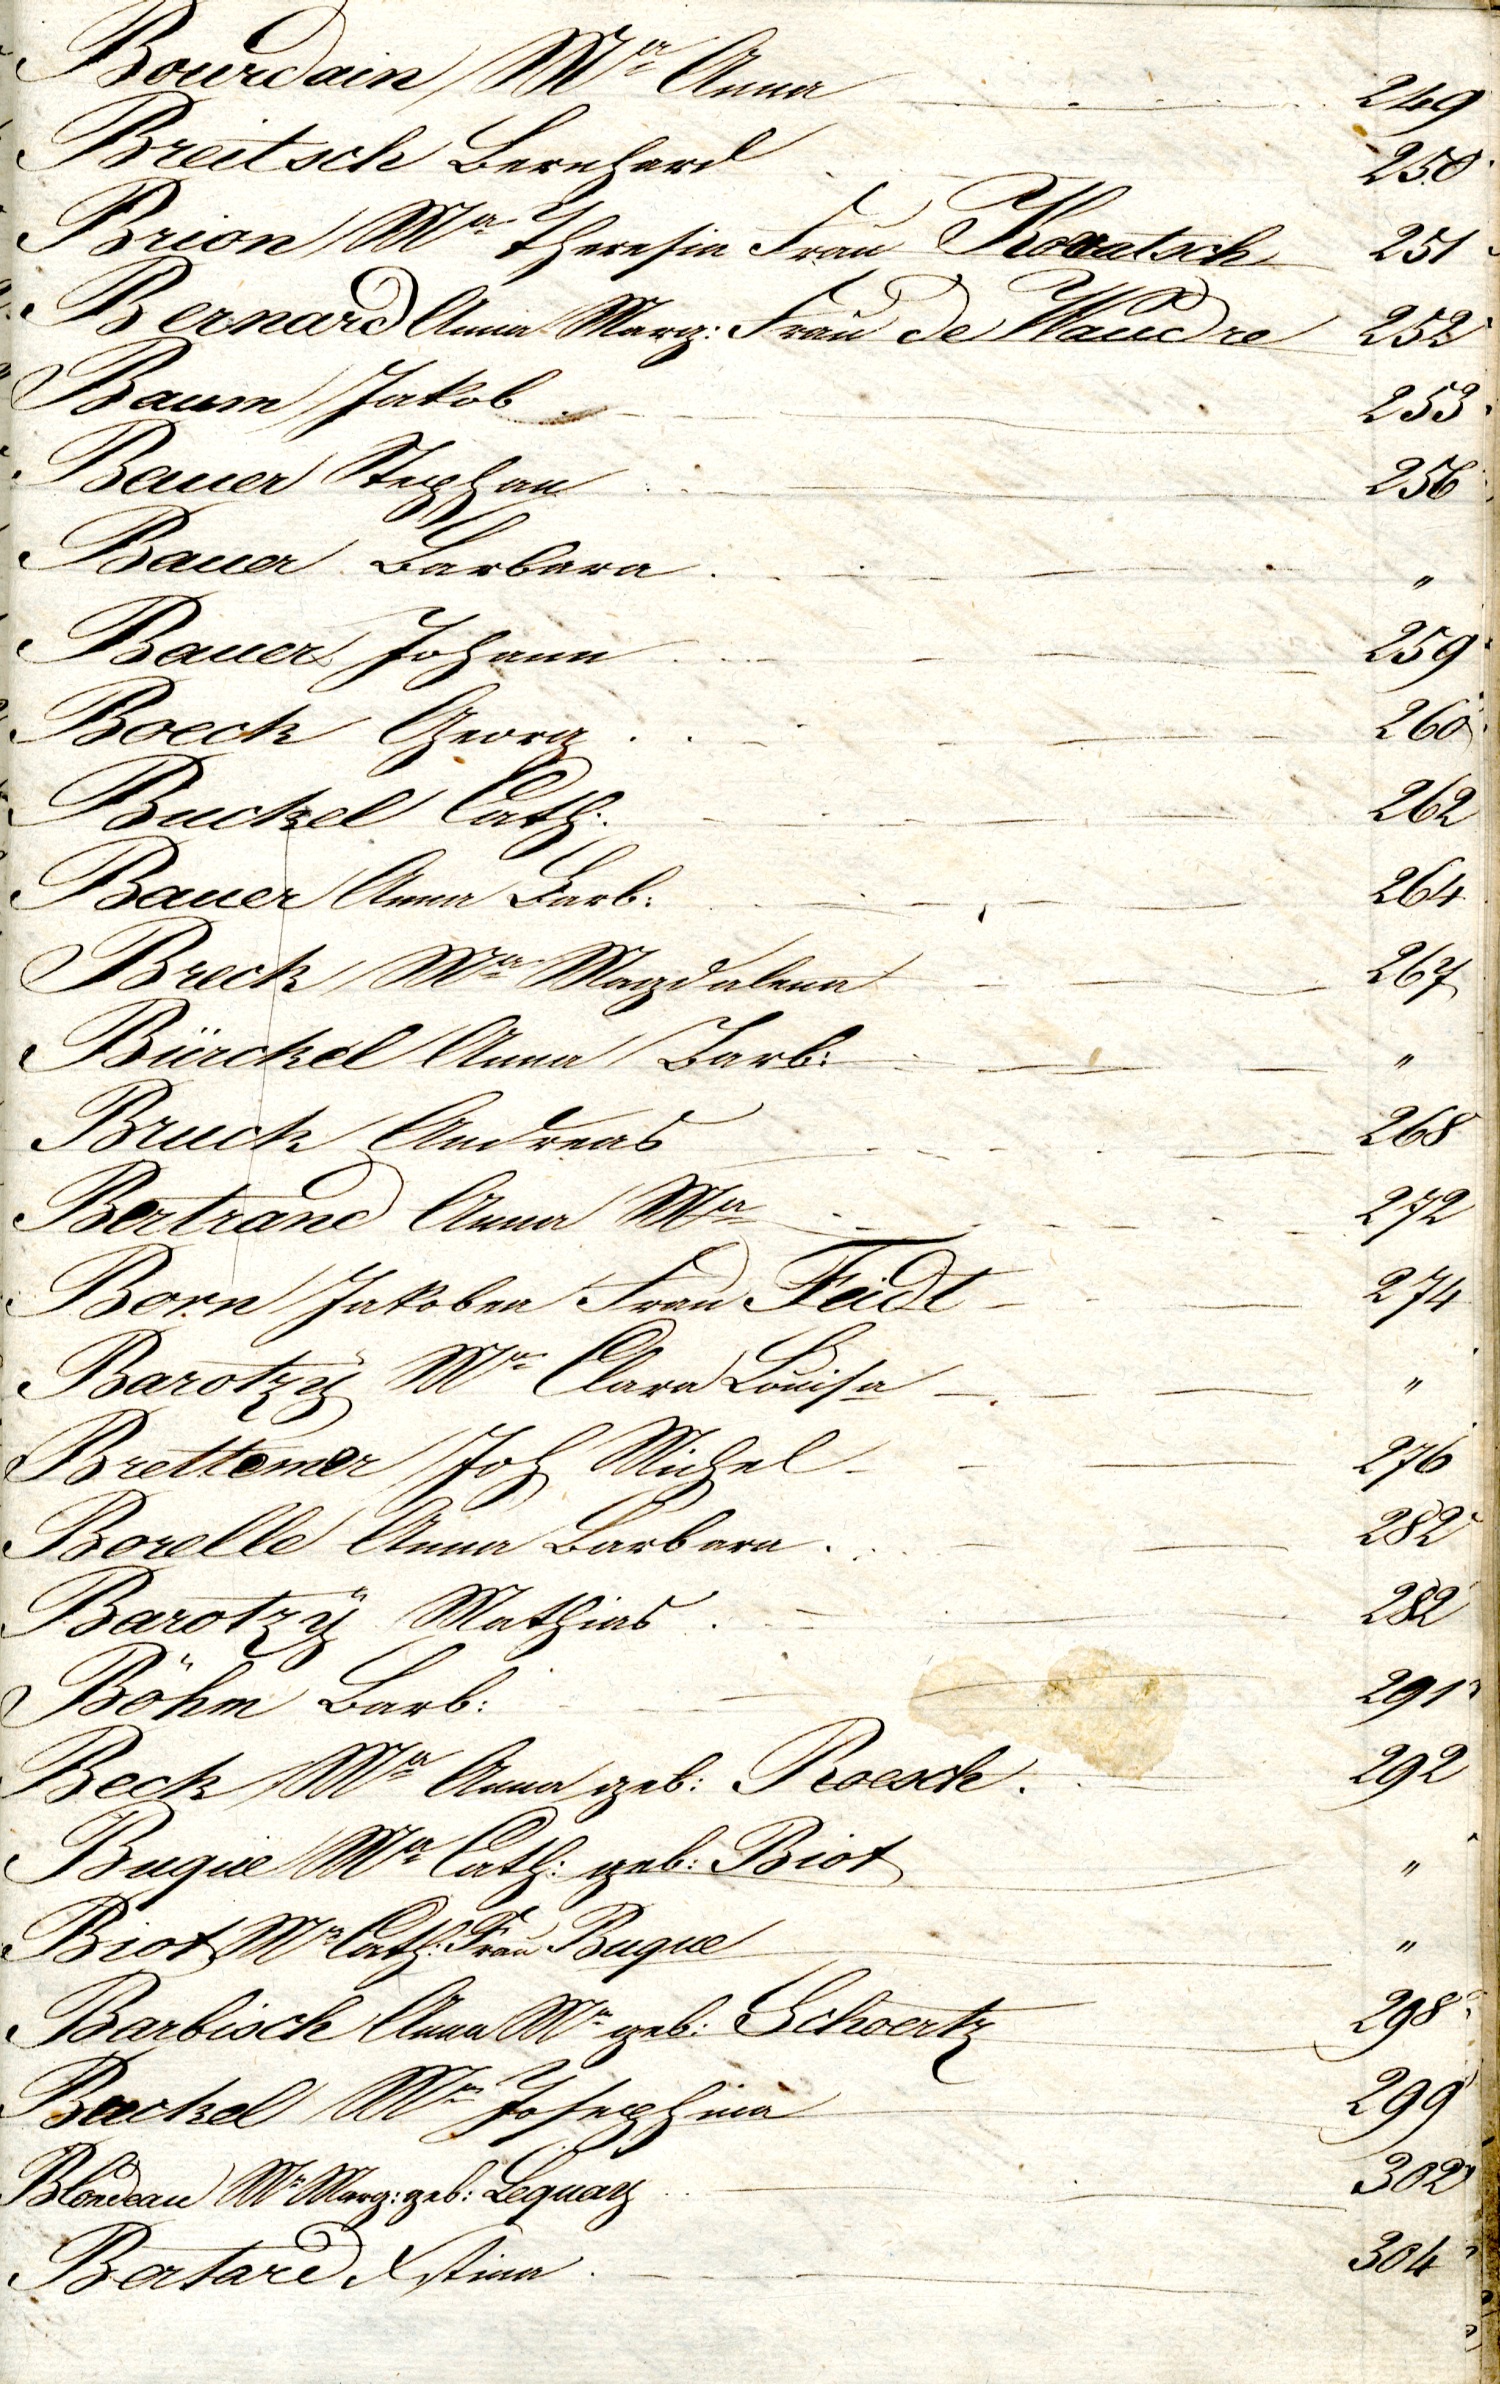 Bourdain Ma Anna 249
Breitsch Bernhard 250
Brion Ma Theresia Frau Kovatsch 251
Bernard Anna Marg: Frau de Waudre 252
Baum Jakob 253
Bauer Stephan 256
Bauer Barbara "
Bauer Johann 259
Boeck Georg 260
Buckel Cath: 262
Bauer Anna Barb: 264
Breck Ma Magdalena 267
Bürckel Anna Barb: "
Bruck Andreas 268
Bertrand Anna Ma 272
Born Jakobea Frau Feidt 274
Barotzÿ Ma Clara Louisa "
Brettemer Joh Michel 276
Borelle Anna Barbara 282
Barotzÿ Mathias 282
Böhm Barb: 291
Beck Ma Anna geb: Roesch 292
Buque Ma Cath: geb: Biot "
Biot Ma Cath: Frau Buque "
Barbisch Anna Ma geb: Schoertz 298
Buckel Ma Josephina 299
Blondeau Ma Marg: geb: Lequay 302
Bertard Xstina 304